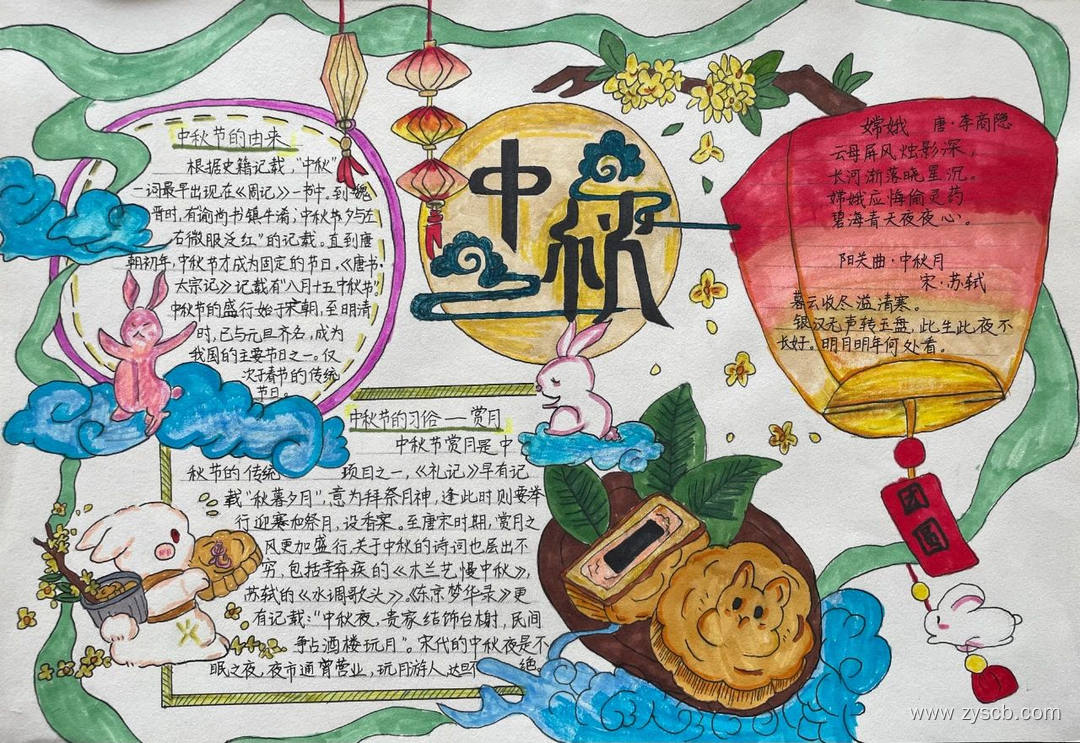 中秋
中秋节的由来
根据史籍记载，“中秋”
一词最早出现在《周记》一书中。到魏
晋时，有“谕尚书镇牛渚，中秋节夕与左
右微服泛红”的记载。直到唐
朝初年，中秋节才成为固定的节日。《唐书·
太宗记》记载有“八月十五中秋节”。
中秋节的盛行始于宋朝，至明清
时，已与元旦齐名，成为
我国的主要节日之一。仅
次于春节的传统
节日。
嫦娥 唐·李商隐
云母屏风烛影深，
长河渐落晓星沉。
嫦娥应悔偷灵药
碧海青天夜夜心。
阳关曲·中秋月
宋·苏轼
暮云收尽溢清寒。
银汉无声转玉盘，此生此夜不
长好。明月明年何处看。
团圆
中秋节的习俗——赏月
中秋节赏月是中
秋节的传统 项目之一，《礼记》早有记
载“秋暮夕月”，意为拜祭月神，逢此时则要举
行迎寒和祭月，设香案。至唐宋时期，赏月之
风更加盛行，关于中秋的诗词也层出不
穷，包括辛弃疾的《木兰艺慢中秋》，
苏轼的《水调歌头》。《东京梦华录》更
有记载：“中秋夜，贵家结饰台榭，民间
争占酒楼玩月”。宋代的中秋夜是不
眠之夜，夜市通宵营业，玩月游人达旦不绝
www.zyscb.com